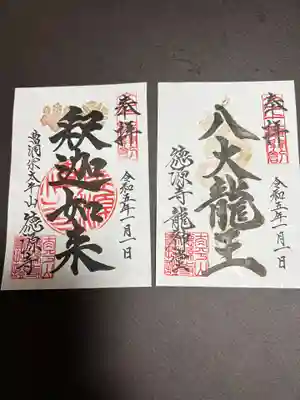 奉拝
釈迦如来
令和五年一月一日
曹洞宗太平山
徳源寺
奉拝
八大龍王
令和五年一月一日
徳源寺龍神堂